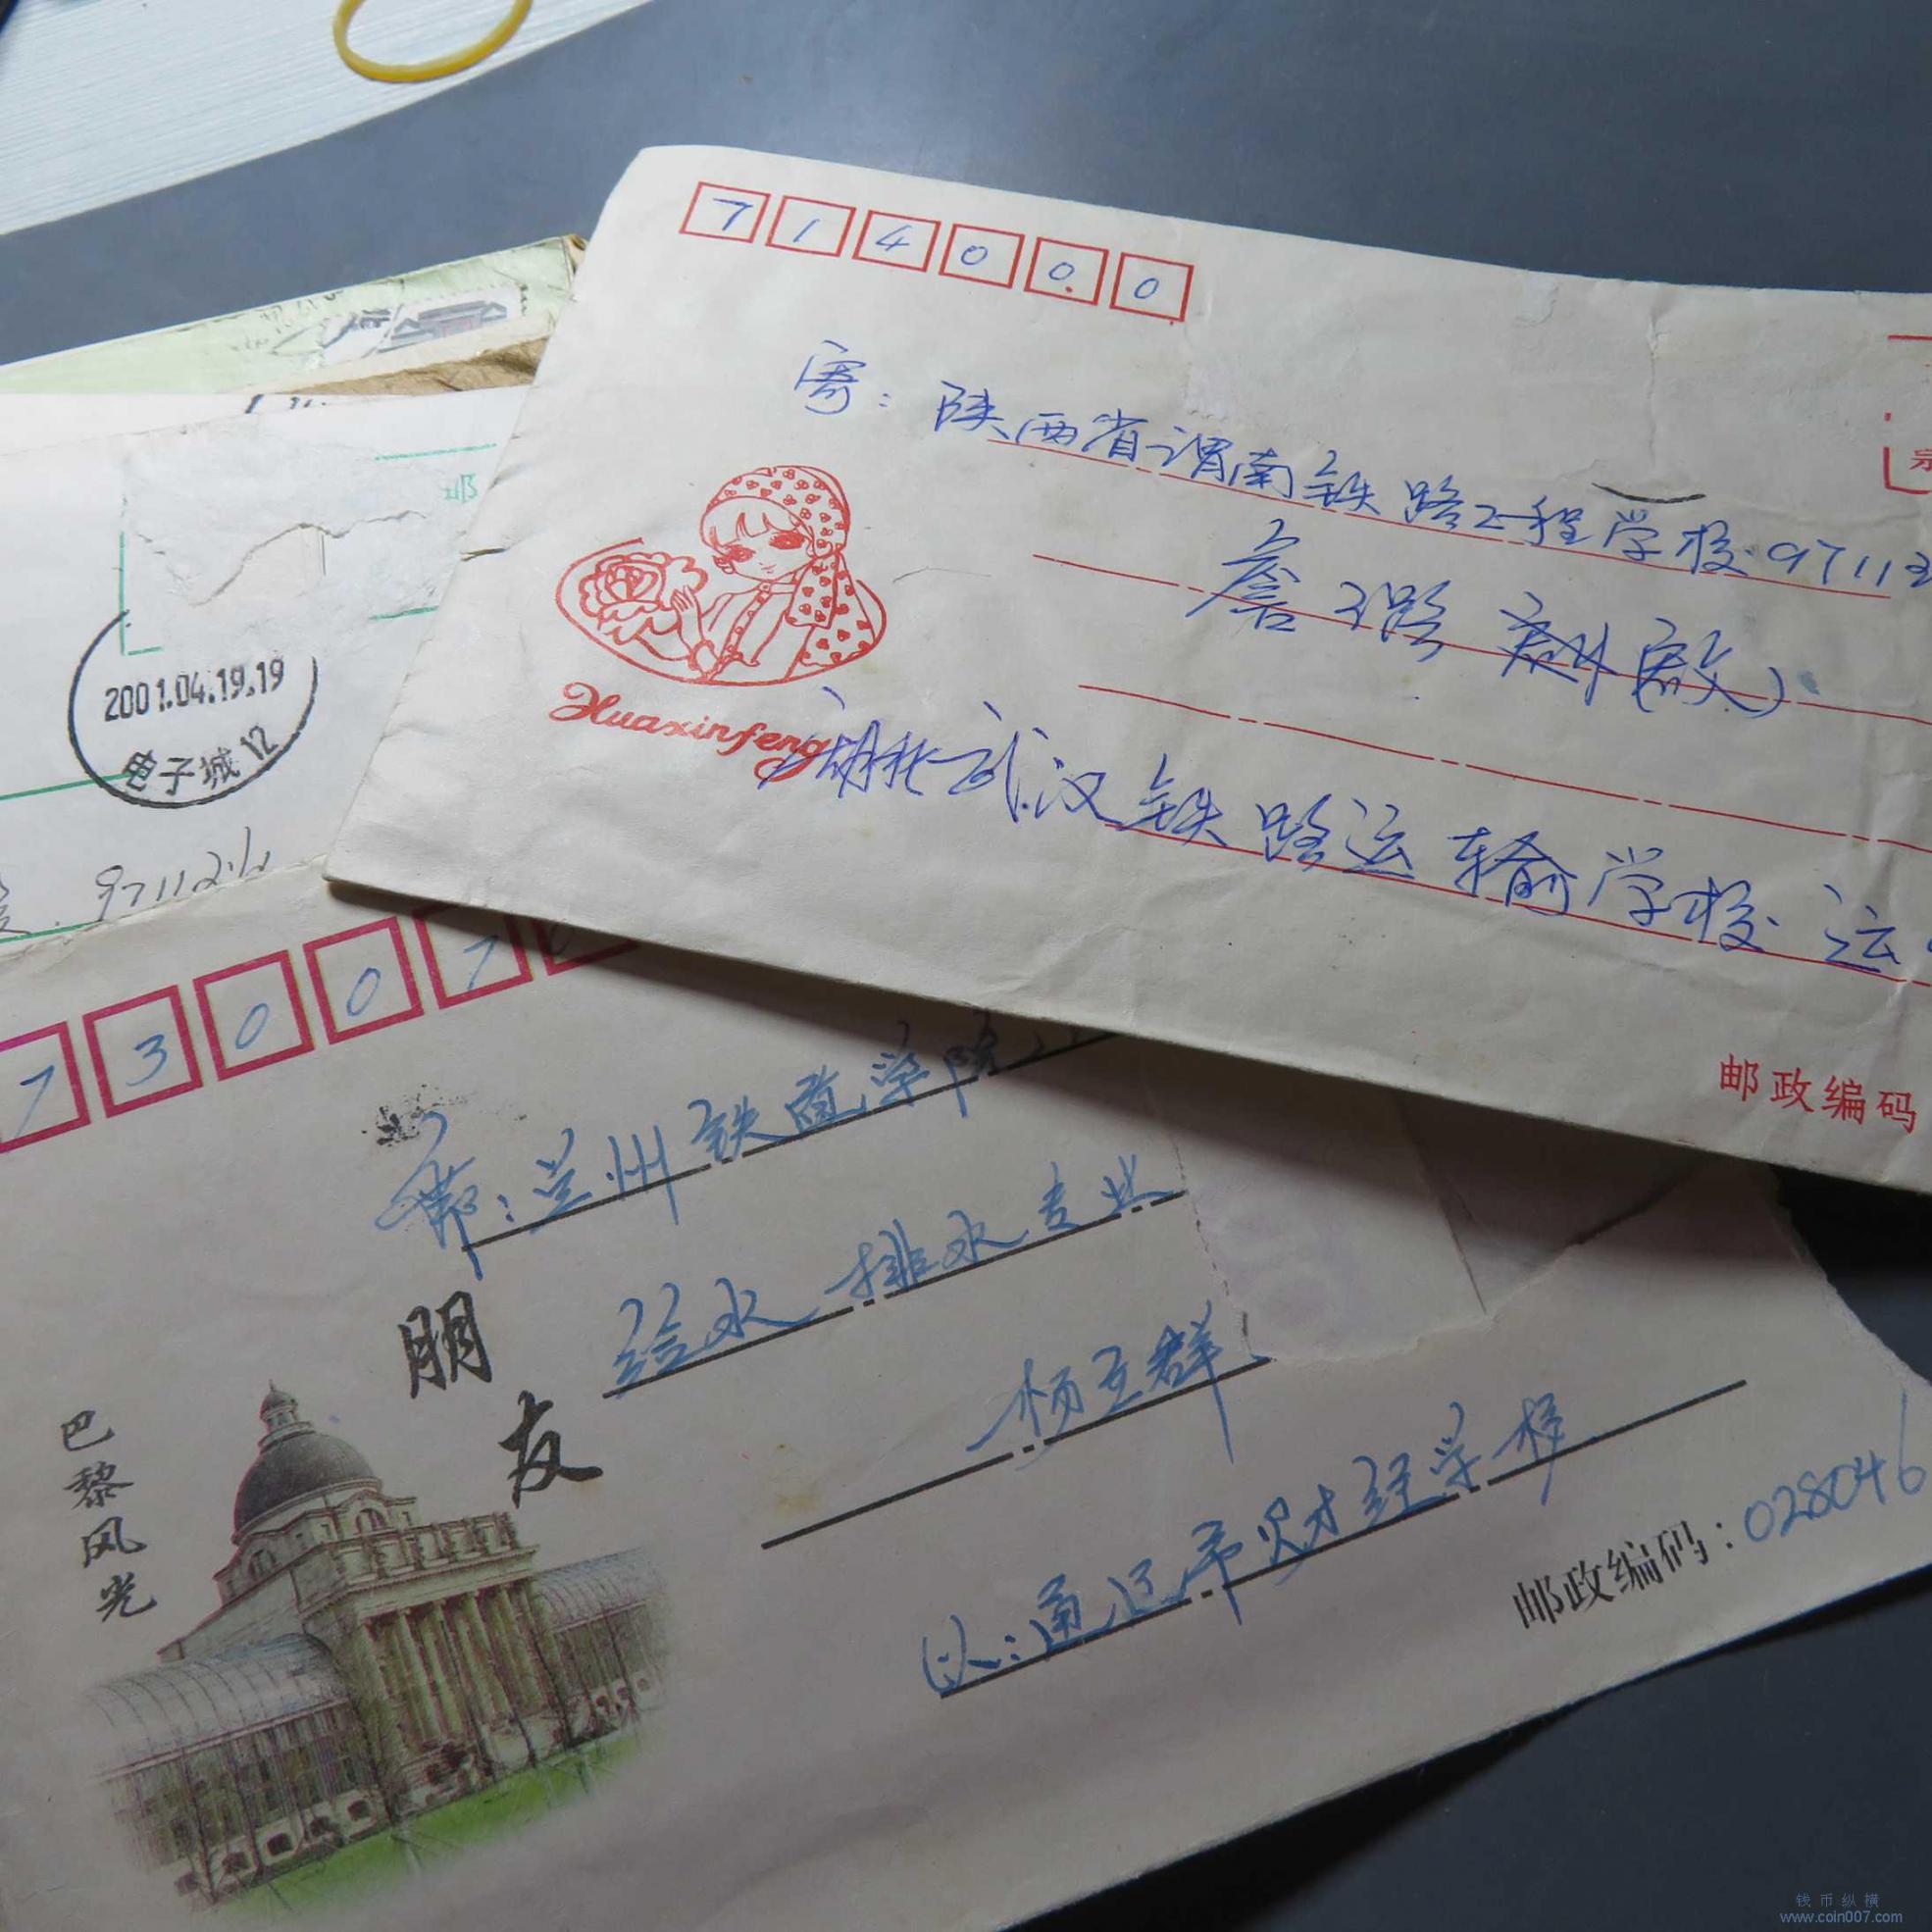 714000
寄：陕西省渭南铁路工程学校9711
詹 璐
Huaxinfeng
湖北武汉铁路运输学校 运
邮政编码
邮
2001.04.19.19
电子城12
97112
73007
寄：兰州铁道学院
给水排水专业
杨玉群
朋友
巴黎风光
以：通辽市财经学校
邮政编码：028046
钱币纵横
www.coin007.com